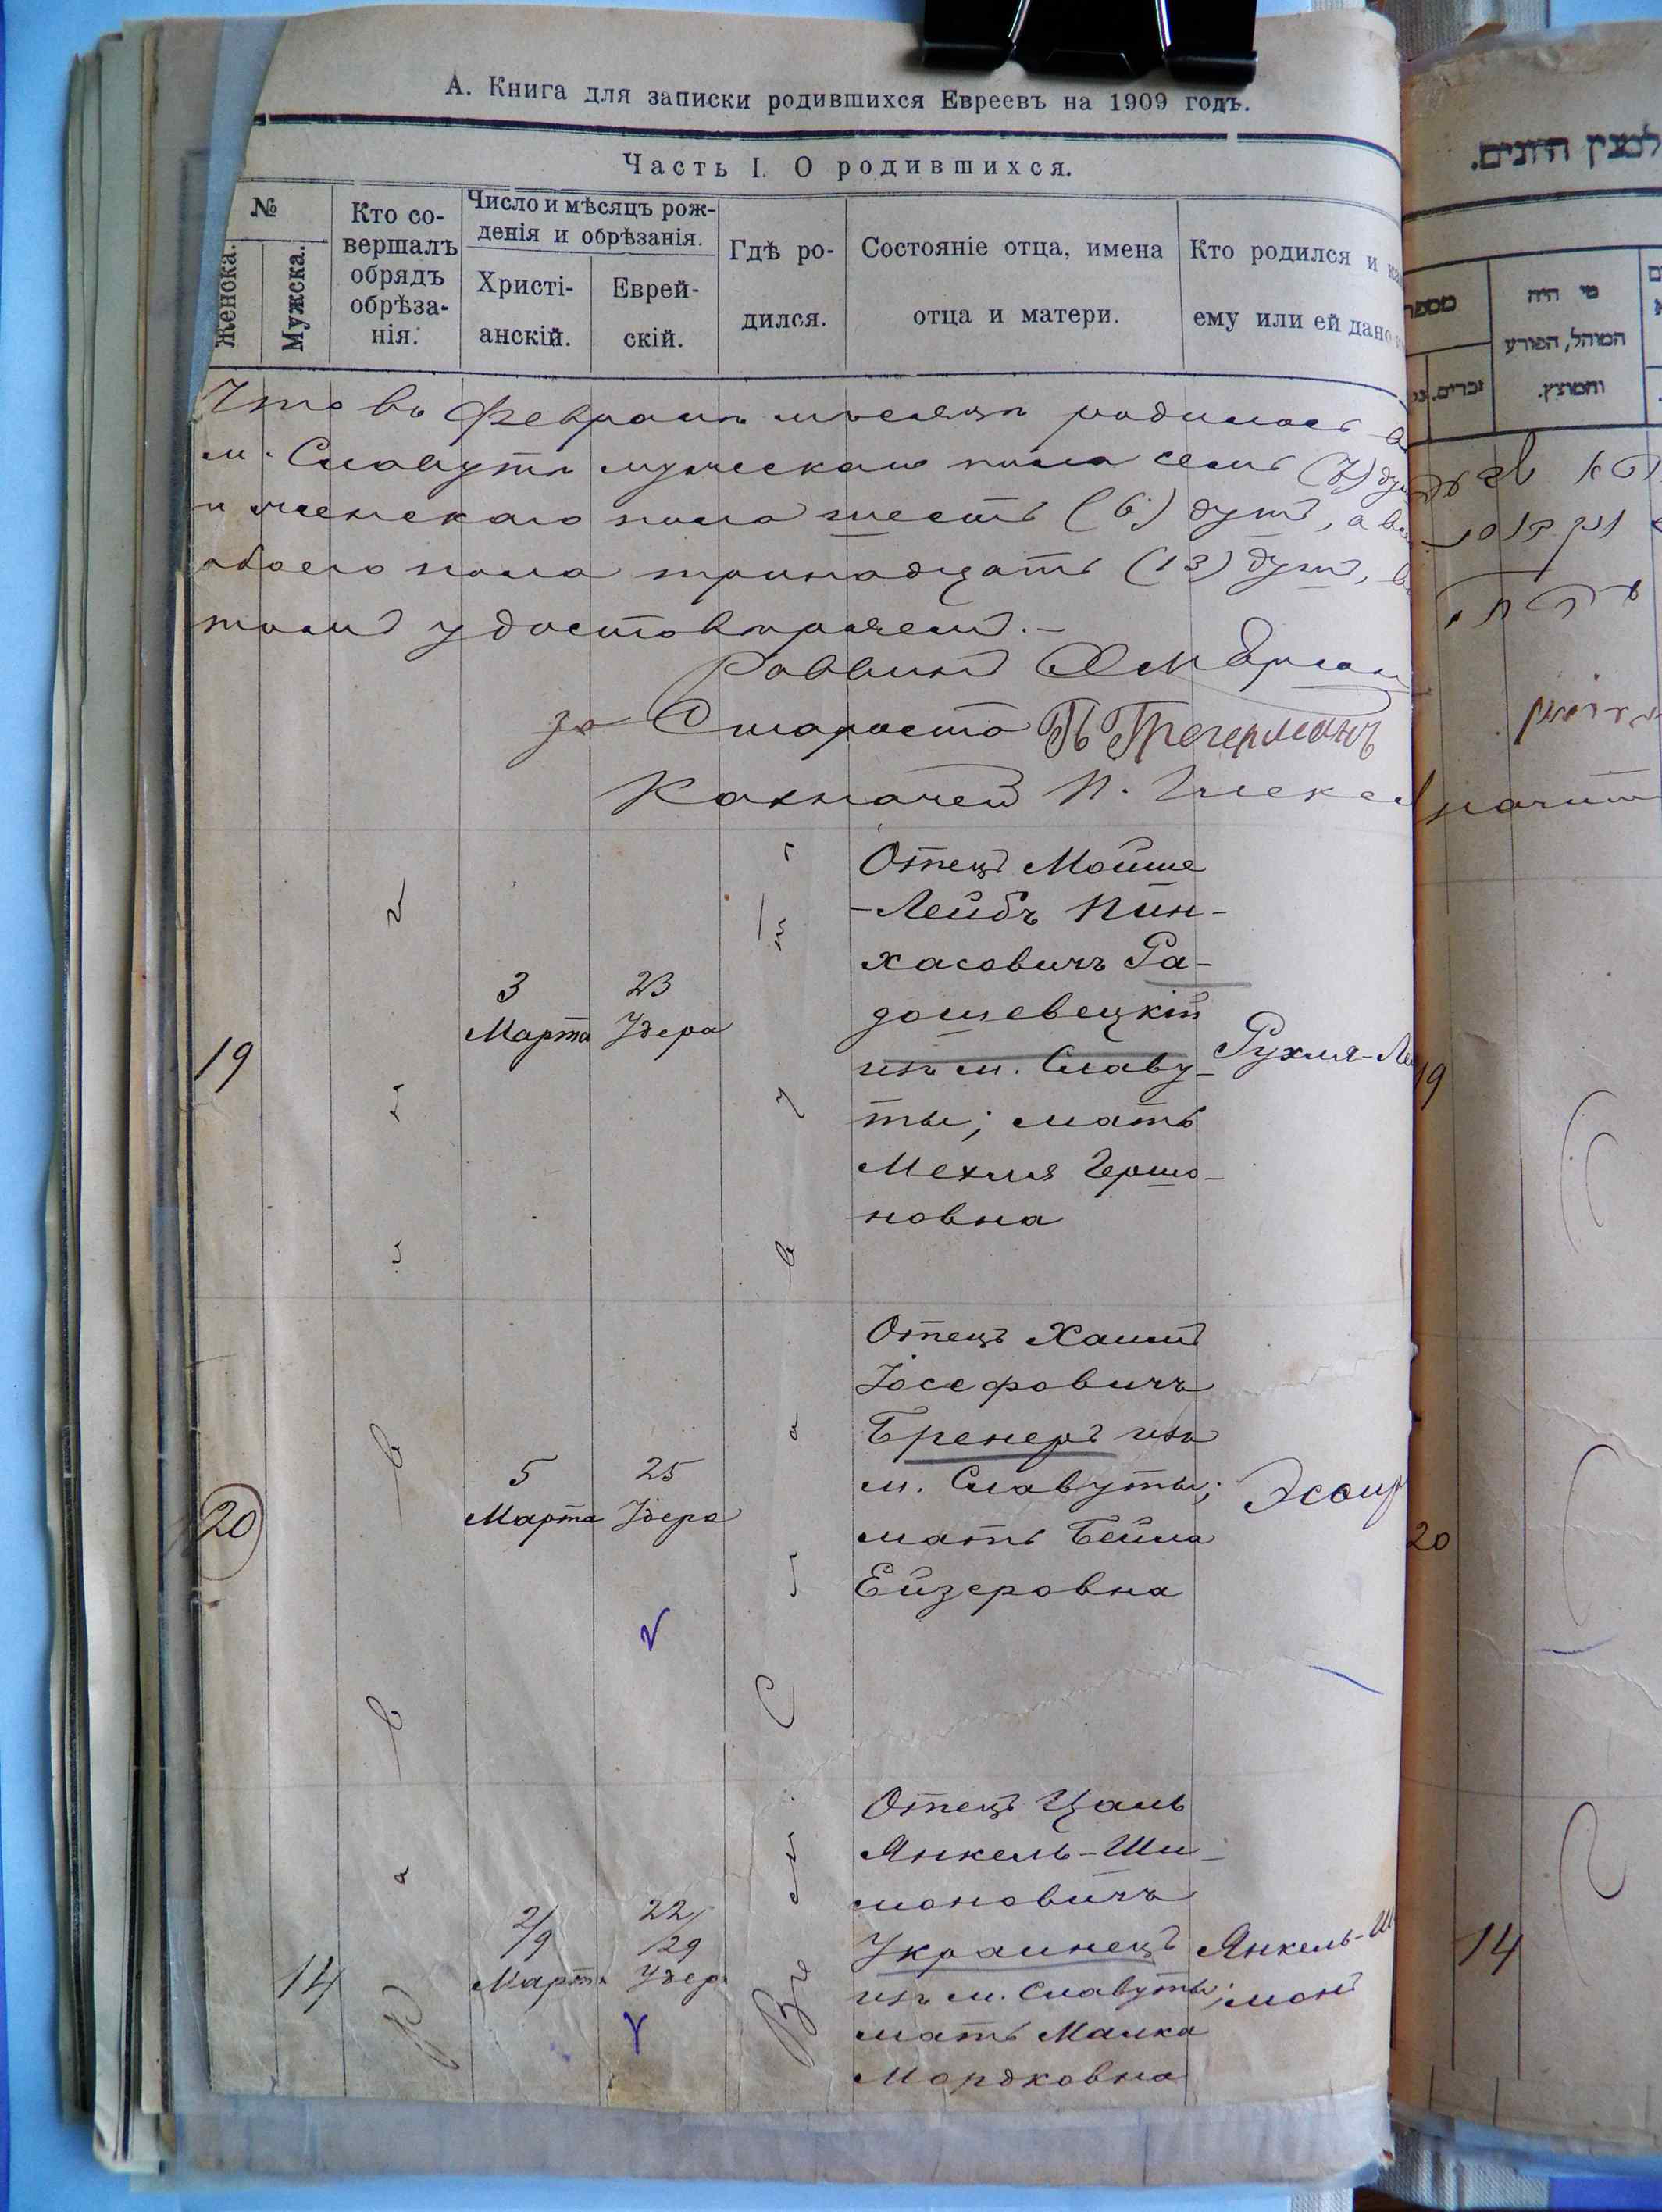 А. Книга для записки родившихся Евреевъ на 1909 годъ.
Часть I. О родившихся.
№
Женска.
Мужска.
Кто со-
вершалъ
обрядъ
обрѣза-
нія.
Число и мѣсяцъ рож-
денія и обрѣзанія.
Христі-
анскій.
Еврей-
скій.
Гдѣ ро-
дился.
Состояніе отца, имена
отца и матери.
Кто родился и
ему или ей дано
Что въ Февралѣ мѣсяцѣ родилось
м. Славутѣ мужскаго пола семь (7)
и женскаго пола шесть (6) душъ, а
обоего пола тринадцать (13) душъ,
томъ удостовѣряемъ.—
Раввинъ
за Старосто
Казначей П.
19
3
Марта
23
Адера
Отецъ Мойше
-Лейбъ Пин-
хасовичъ Ра-
дошевецкій
изъ м. Славу-
ты; мать
Мехля Гершо-
новна
Рухля-
20
5
Марта
25
Адера
Отецъ Хаимъ
Іосефовичъ
Бренеръ изъ
м. Славуты;
мать Бейла
Ейзеровна
14
2/9
Марта
22/29
Адер
Отецъ Цаль
Янкель-Ши-
моновичъ
Украинецъ
изъ м. Славуты;
мать Малка
Мордковна
Янкель-Ш
монъ
въ м. Славутѣ
לוצין הזונים.
מי היה
המוהל, הפורע
והמוצץ.
זכרים.
19
20
14